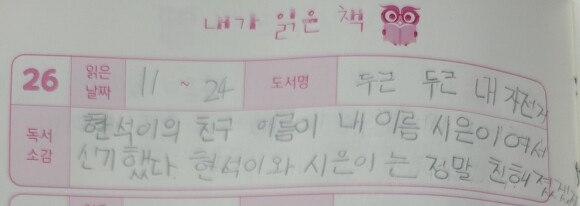 내가 읽은 책
26 읽은 날짜 11 ~ 24 도서명 두근 두근 내 자전거
독서 소감 현석이의 친구 이름이 내 이름 시은이여서
신기했다. 현석이와 시은이는 정말 친해졌